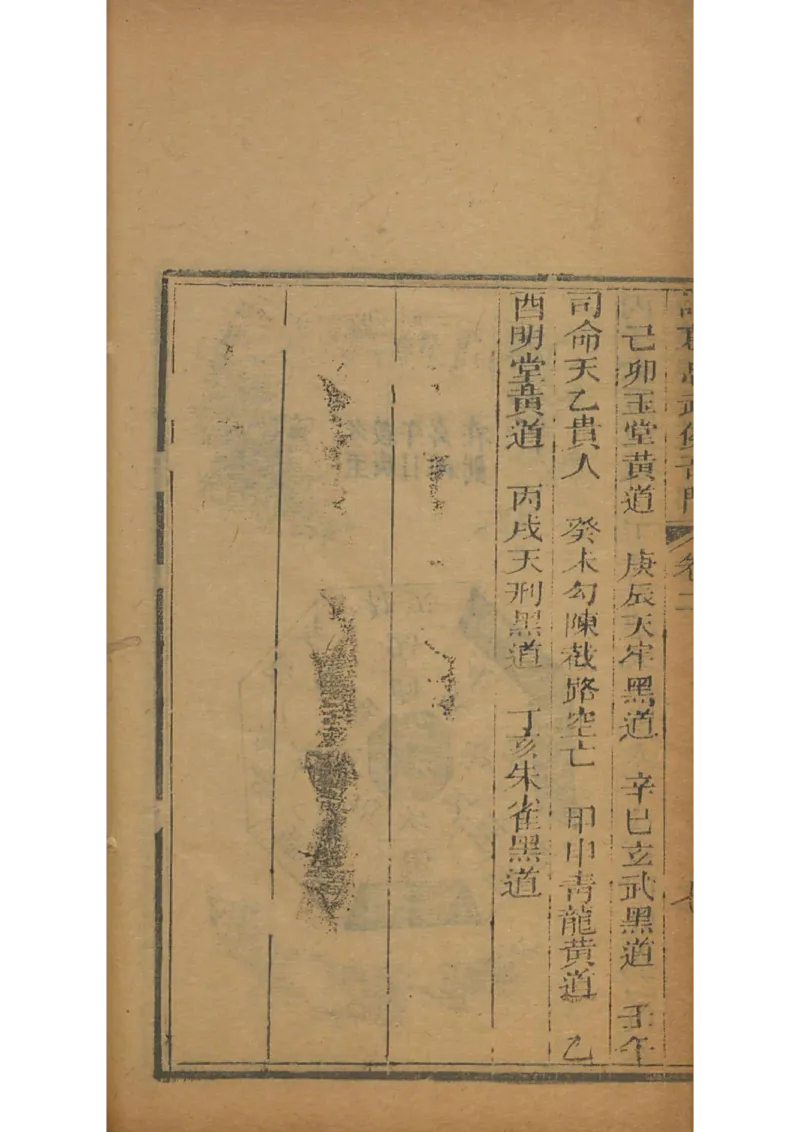 卷二
己卯玉堂黃道　庚辰天牢黑道　辛巳立武黑道　壬午
司命天乙貴人　癸未勾陳截路空亡　甲申青龍黃道　乙
酉明堂黃道　丙戌天刑黑道　丁亥朱雀黑道